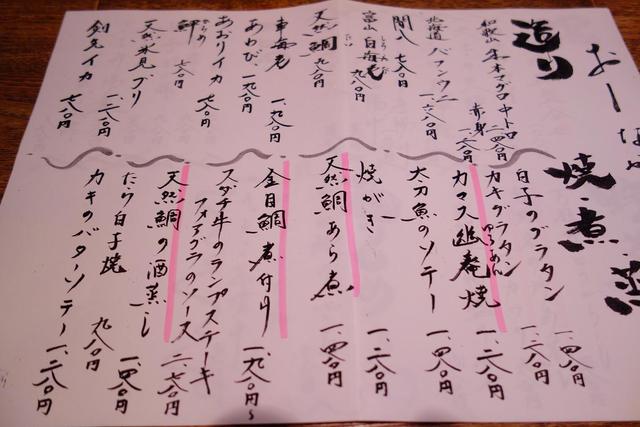 おしながき
造り
和歌山 生本マグロ 中トロ 二、四八〇円
赤身 一、六八〇円
北海道 バフンウニ 一、六八〇円
関八 七八〇円
富山 白海老 九八〇円
天然鯛 九八〇円
車海老 一、九八〇円
あわび 一、九八〇円
あおりイカ 七八〇円
鰤 七八〇円
天然氷見ブリ 一、二八〇円
剣先イカ 七八〇円
焼・煮・蒸
白子のグラタン 一、四八〇円
カキグラタン 一、二八〇円
カマス幽庵焼 ゆうあん 一、二八〇円
太刀魚のソテー 一、四八〇円
焼がき 一、二八〇円
天然鯛あら煮 一、四八〇円
金目鯛煮付け 一、九八〇円〜
スダチ牛のランプステーキ
フォアグラのソース 二、七八〇円
天然鯛の酒蒸し 一、四八〇円
たら白子焼 九八〇円
カキのバターソテー 一、二八〇円